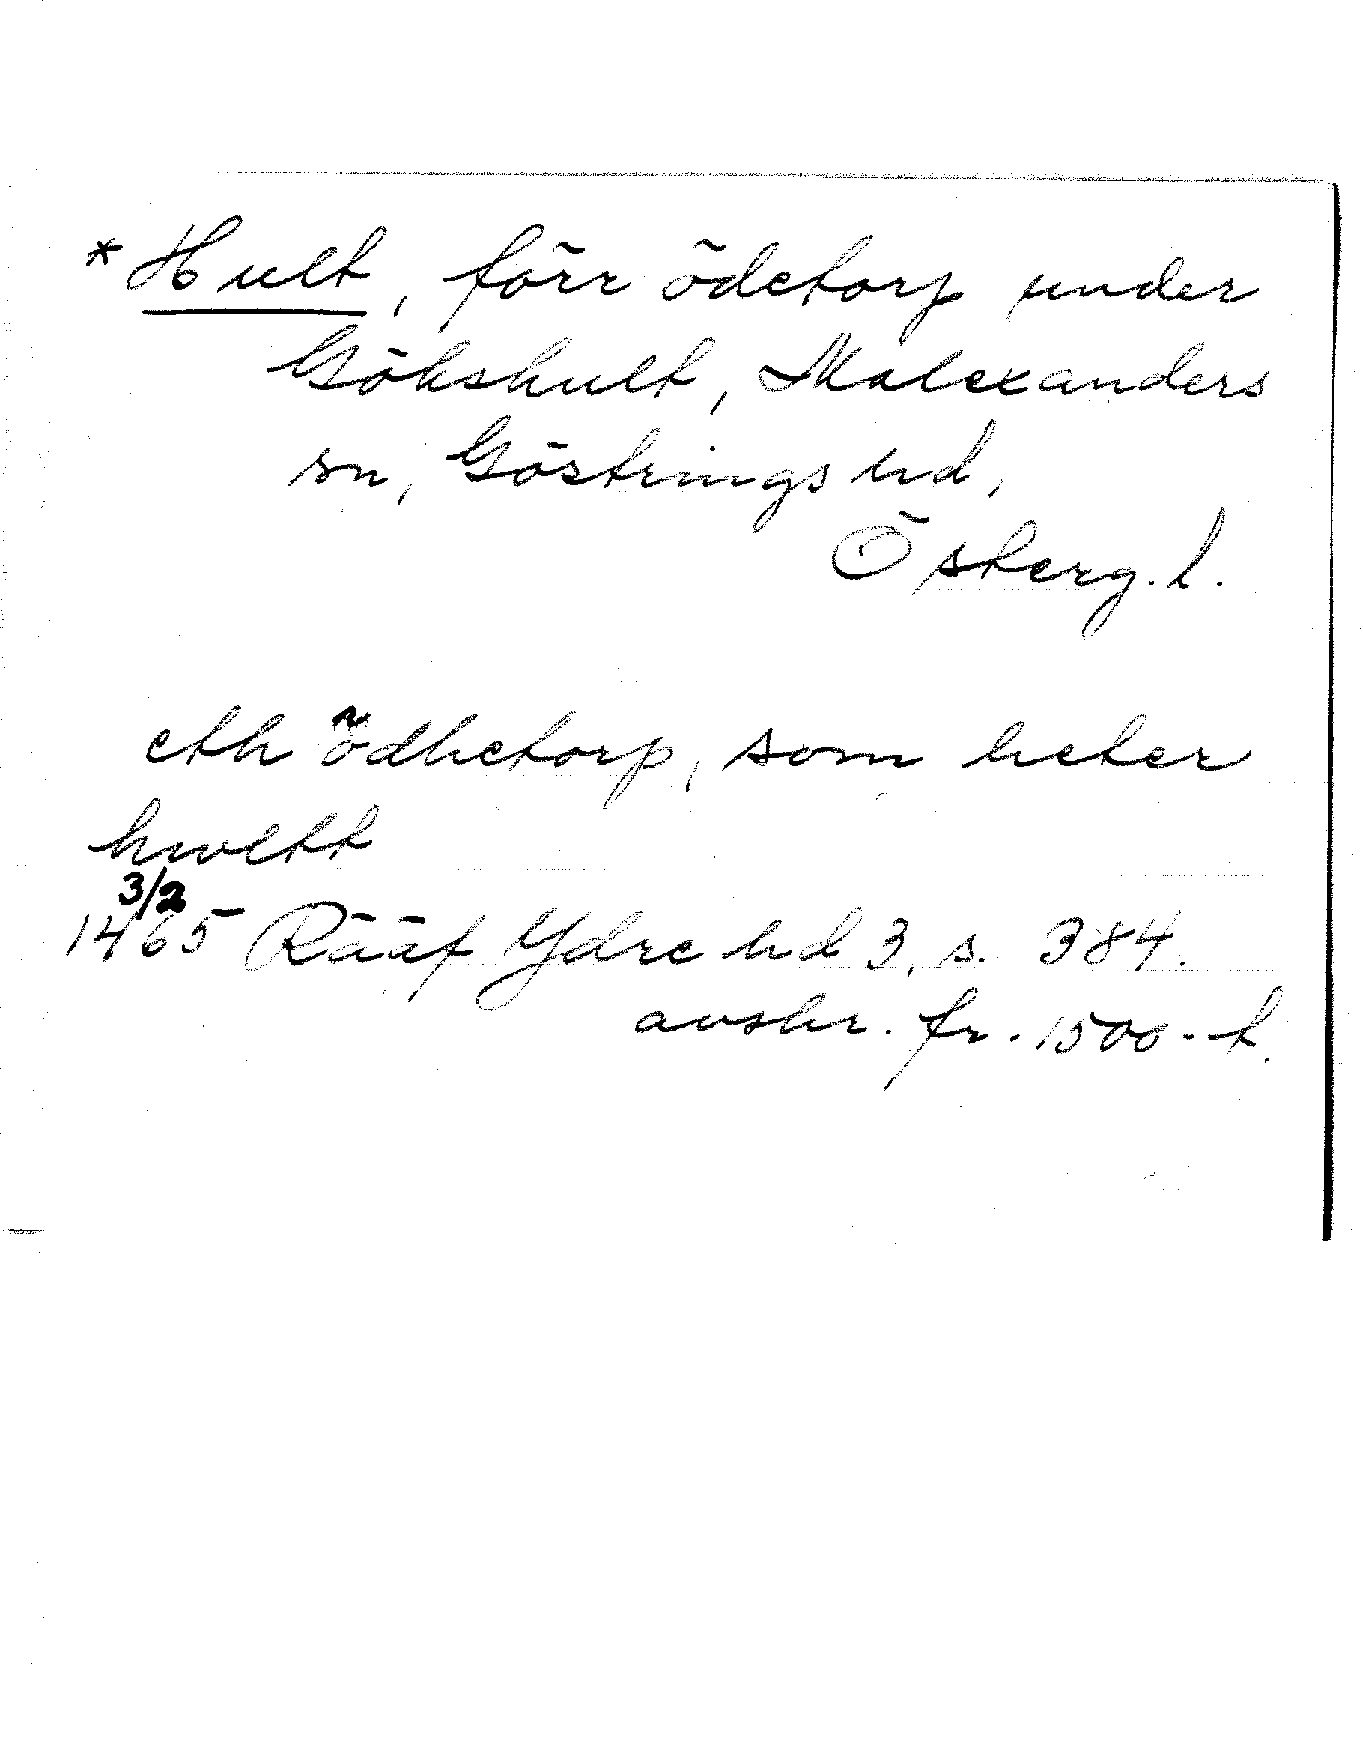 *Hult, förr ödetorp under
Gökshult, Malexanders
sn, Göstrings hd,
Österg. l.
eth ödhetorp, som heter
hwltt
3/2
1465 Rääf Ydre hd 3, s. 384.
avskr. fr. 1500-t.